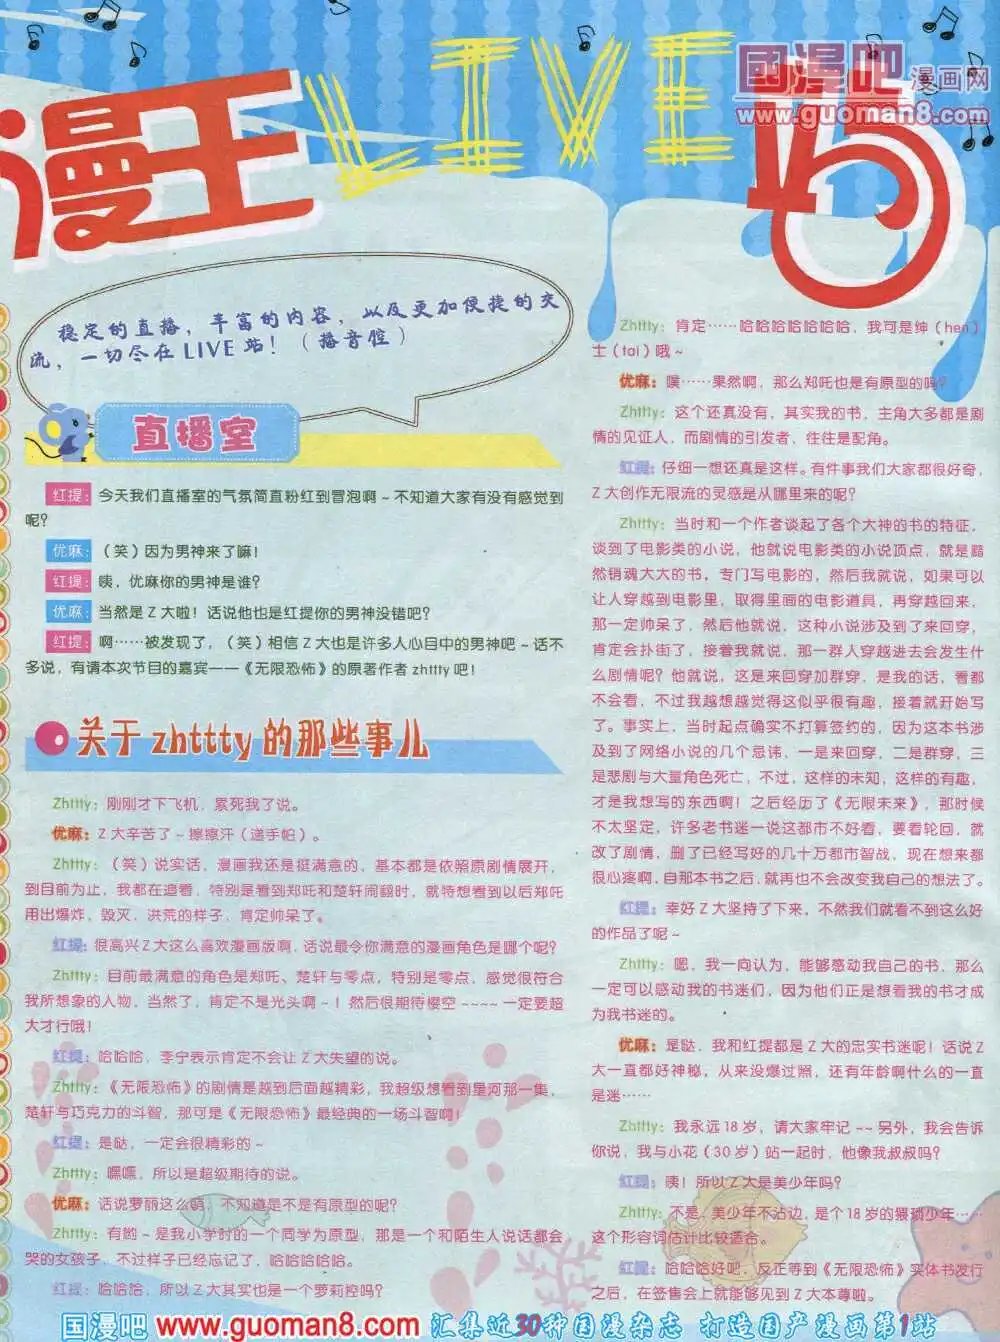 漫王 LIVE 站
國漫吧 漫画网
www.guoman8.com
稳定的直播，丰富的内容，以及更加便捷的交
流，一切尽在 LIVE 站！（播音腔）
直播室
红提：今天我们直播室的气氛简直粉红到冒泡啊～不知道大家有没有感觉到
呢？
优麻：（笑）因为男神来了嘛！
红提：咦，优麻你的男神是谁？
优麻：当然是 Z 大啦！话说他也是红提你的男神没错吧？
红提：啊……被发现了，（笑）相信 Z 大也是许多人心目中的男神吧～话不
多说，有请本次节目的嘉宾——《无限恐怖》的原著作者 zhttty 吧！
关于 zhttty 的那些事儿
Zhttty：刚刚才下飞机，累死我了说。
优麻：Z 大辛苦了～擦擦汗（递手帕）。
Zhttty：（笑）说实话，漫画我还是挺满意的，基本都是依照原剧情展开，
到目前为止，我都在追看，特别是看到郑吒和楚轩闹翻时，就特想看到以后郑吒
用出爆炸，毁灭，洪荒的样子，肯定帅呆了。
红提：很高兴 Z 大这么喜欢漫画版啊，话说最令你满意的漫画角色是哪个呢？
Zhttty：目前最满意的角色是郑吒、楚轩与零点，特别是零点，感觉很符合
我所想象的人物，当然了，肯定不是光头啊～！然后很期待樱空～～～～一定要超
大才行哦！
红提：哈哈哈，李宁表示肯定不会让 Z 大失望的说。
Zhttty：《无限恐怖》的剧情是越到后面越精彩，我超级想看到里河那一集，
楚轩与巧克力的斗智，那可是《无限恐怖》最经典的一场斗智啊！
红提：是哒，一定会很精彩的～
Zhttty：嘿嘿，所以是超级期待的说。
优麻：话说萝丽这么萌，不知道是不是有原型的呢？
Zhttty：有哟～是我小学时的一个同学为原型，那是一个和陌生人说话都会
哭的女孩子，不过样子已经忘记了，哈哈哈哈哈。
红提：哈哈哈，所以 Z 大其实也是一个萝莉控吗？
Zhttty：肯定……哈哈哈哈哈哈哈，我可是绅（hen）
士（tai）哦～
优麻：噗……果然啊，那么郑吒也是有原型的吗？
Zhttty：这个还真没有，其实我的书，主角大多都是剧
情的见证人，而剧情的引发者，往往是配角。
红提：仔细一想还真是这样。有件事我们大家都很好奇，
Z 大创作无限流的灵感是从哪里来的呢？
Zhttty：当时和一个作者谈起了各个大神的书的特征，
谈到了电影类的小说，他就说电影类的小说顶点，就是黯
然销魂大大的书，专门写电影的，然后我就说，如果可以
让人穿越到电影里，取得里面的电影道具，再穿越回来，
那一定帅呆了，然后他就说，这种小说涉及到了来回穿，
肯定会扑街了，接着我就说，那一群人穿越进去会发生什
么剧情呢？他就说，这是来回穿加群穿，是我的话，看都
不会看，不过我越想越觉得这似乎很有趣，接着就开始写
了。事实上，当时起点确实不打算签约的，因为这本书涉
及到了网络小说的几个忌讳，一是来回穿，二是群穿，三
是悲剧与大量角色死亡，不过，这样的未知，这样的有趣，
才是我想写的东西啊！之后经历了《无限未来》，那时候
不太坚定，许多老书迷一说这都市不好看，要看轮回，就
改了剧情，删了已经写好的几十万都市智战，现在想来都
很心疼啊，自那本书之后，就再也不会改变我自己的想法了。
红提：幸好 Z 大坚持了下来，不然我们就看不到这么好
的作品了呢～
Zhttty：嗯，我一向认为，能够感动我自己的书，那么
一定可以感动我的书迷们，因为他们正是想看我的书才成
为我书迷的。
优麻：是哒，我和红提都是 Z 大的忠实书迷呢！话说 Z
大一直都好神秘，从来没爆过照，还有年龄啊什么的一直
是迷……
Zhttty：我永远 18 岁，请大家牢记～～另外，我会告诉
你说，我与小花（30 岁）站一起时，他像我叔叔吗？
红提：咦！所以 Z 大是美少年吗？
Zhttty：不是，美少年不沾边，是个 18 岁的猥琐少年……
这个形容词估计比较适合。
红提：哈哈哈好吧，反正等到《无限恐怖》实体书发行
之后，在签售会上就能够见到 Z 大本尊啦。
国漫吧 www.guoman8.com 汇集近30种国漫杂志 打造国产漫画第1站